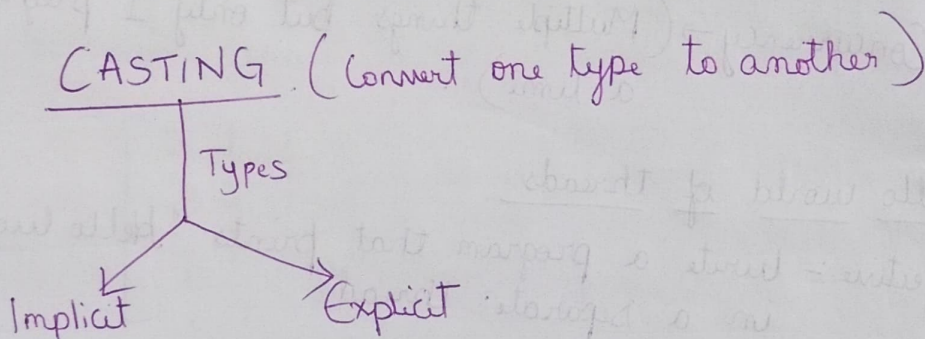 CASTING. (Convert one type to another)
Types
Implicit
Explicit